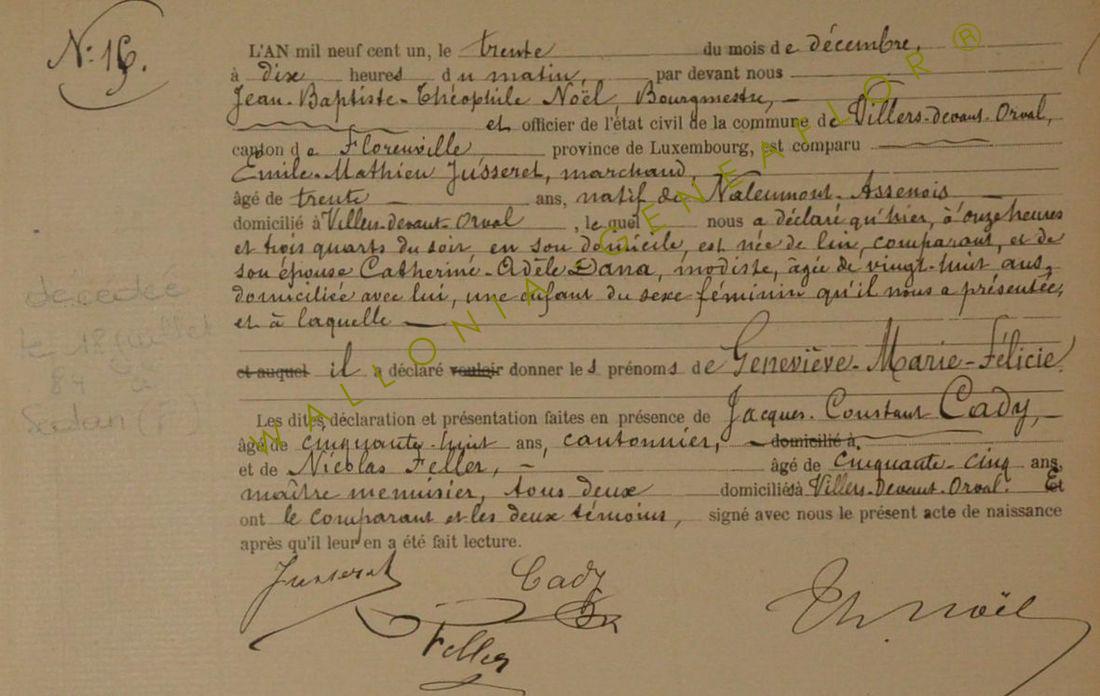 N: 16.
L'AN mil neuf cent un, le trente du mois de décembre,
à dix heures du matin, par devant nous
Jean-Baptiste-Théophile Noël, Bourgmestre,
et officier de l'état civil de la commune de Villers-devant-Orval,
canton de Florenville province de Luxembourg, est comparu
Emile-Mathieu Jusseret, marchand,
âgé de trente ans, natif de Assenois
domicilié à Villers-devant-Orval, le quel nous a déclaré qu'hier, à onze heures
et trois quarts du soir, en son domicile, est née de lui, comparant, et de
son épouse Catherine-Adèle Dana, modiste, âgée de vingt-huit ans,
domiciliée avec lui, une enfant du sexe féminin qu'il nous a présentée,
et à laquelle
et auquel il a déclaré vouloir donner les prénoms de Geneviève-Marie-Félicie
Les dites déclaration et présentation faites en présence de Jacques-Constant Cady,
âgé de cinquante-huit ans, cantonnier, domicilié à
et de Nicolas Feller, âgé de cinquante-cinq ans,
maître menuisier, tous deux domiciliés à Villers-devant-Orval. Et
ont le comparant et les deux témoins, signé avec nous le présent acte de naissance
après qu'il leur en a été fait lecture.
Jusseret Cady Th. Noël
Feller
décédée
le 18 juillet
84 à
Sedan (F)
WALLONIA GENEAFLOR ®